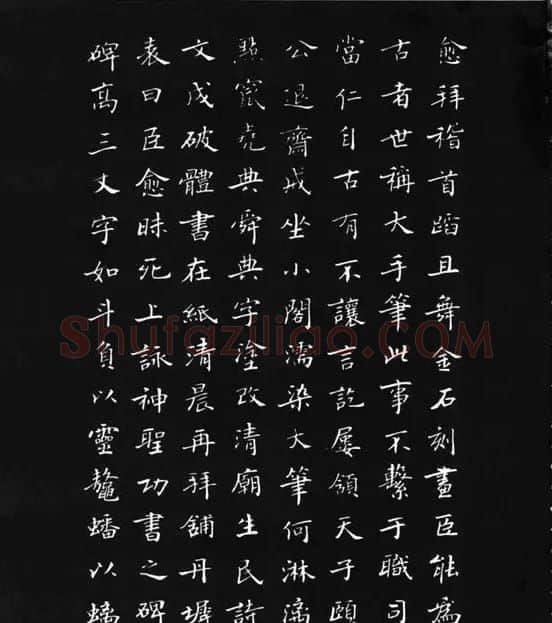 愈拜稽首蹈且舞金石刻畫臣能為
古者世稱大手筆此事不繫于職司
當仁自古有不讓言訖屢頷天子頤
公退齋戒坐小閣濡染大筆何淋漓
點竄堯典舜典字塗改清廟生民詩
文成破體書在紙清晨再拜舖丹墀
表曰臣愈昧死上詠神聖功書之碑
碑高三丈字如斗負以靈鼇蟠以螭
Shufaziliao.COM